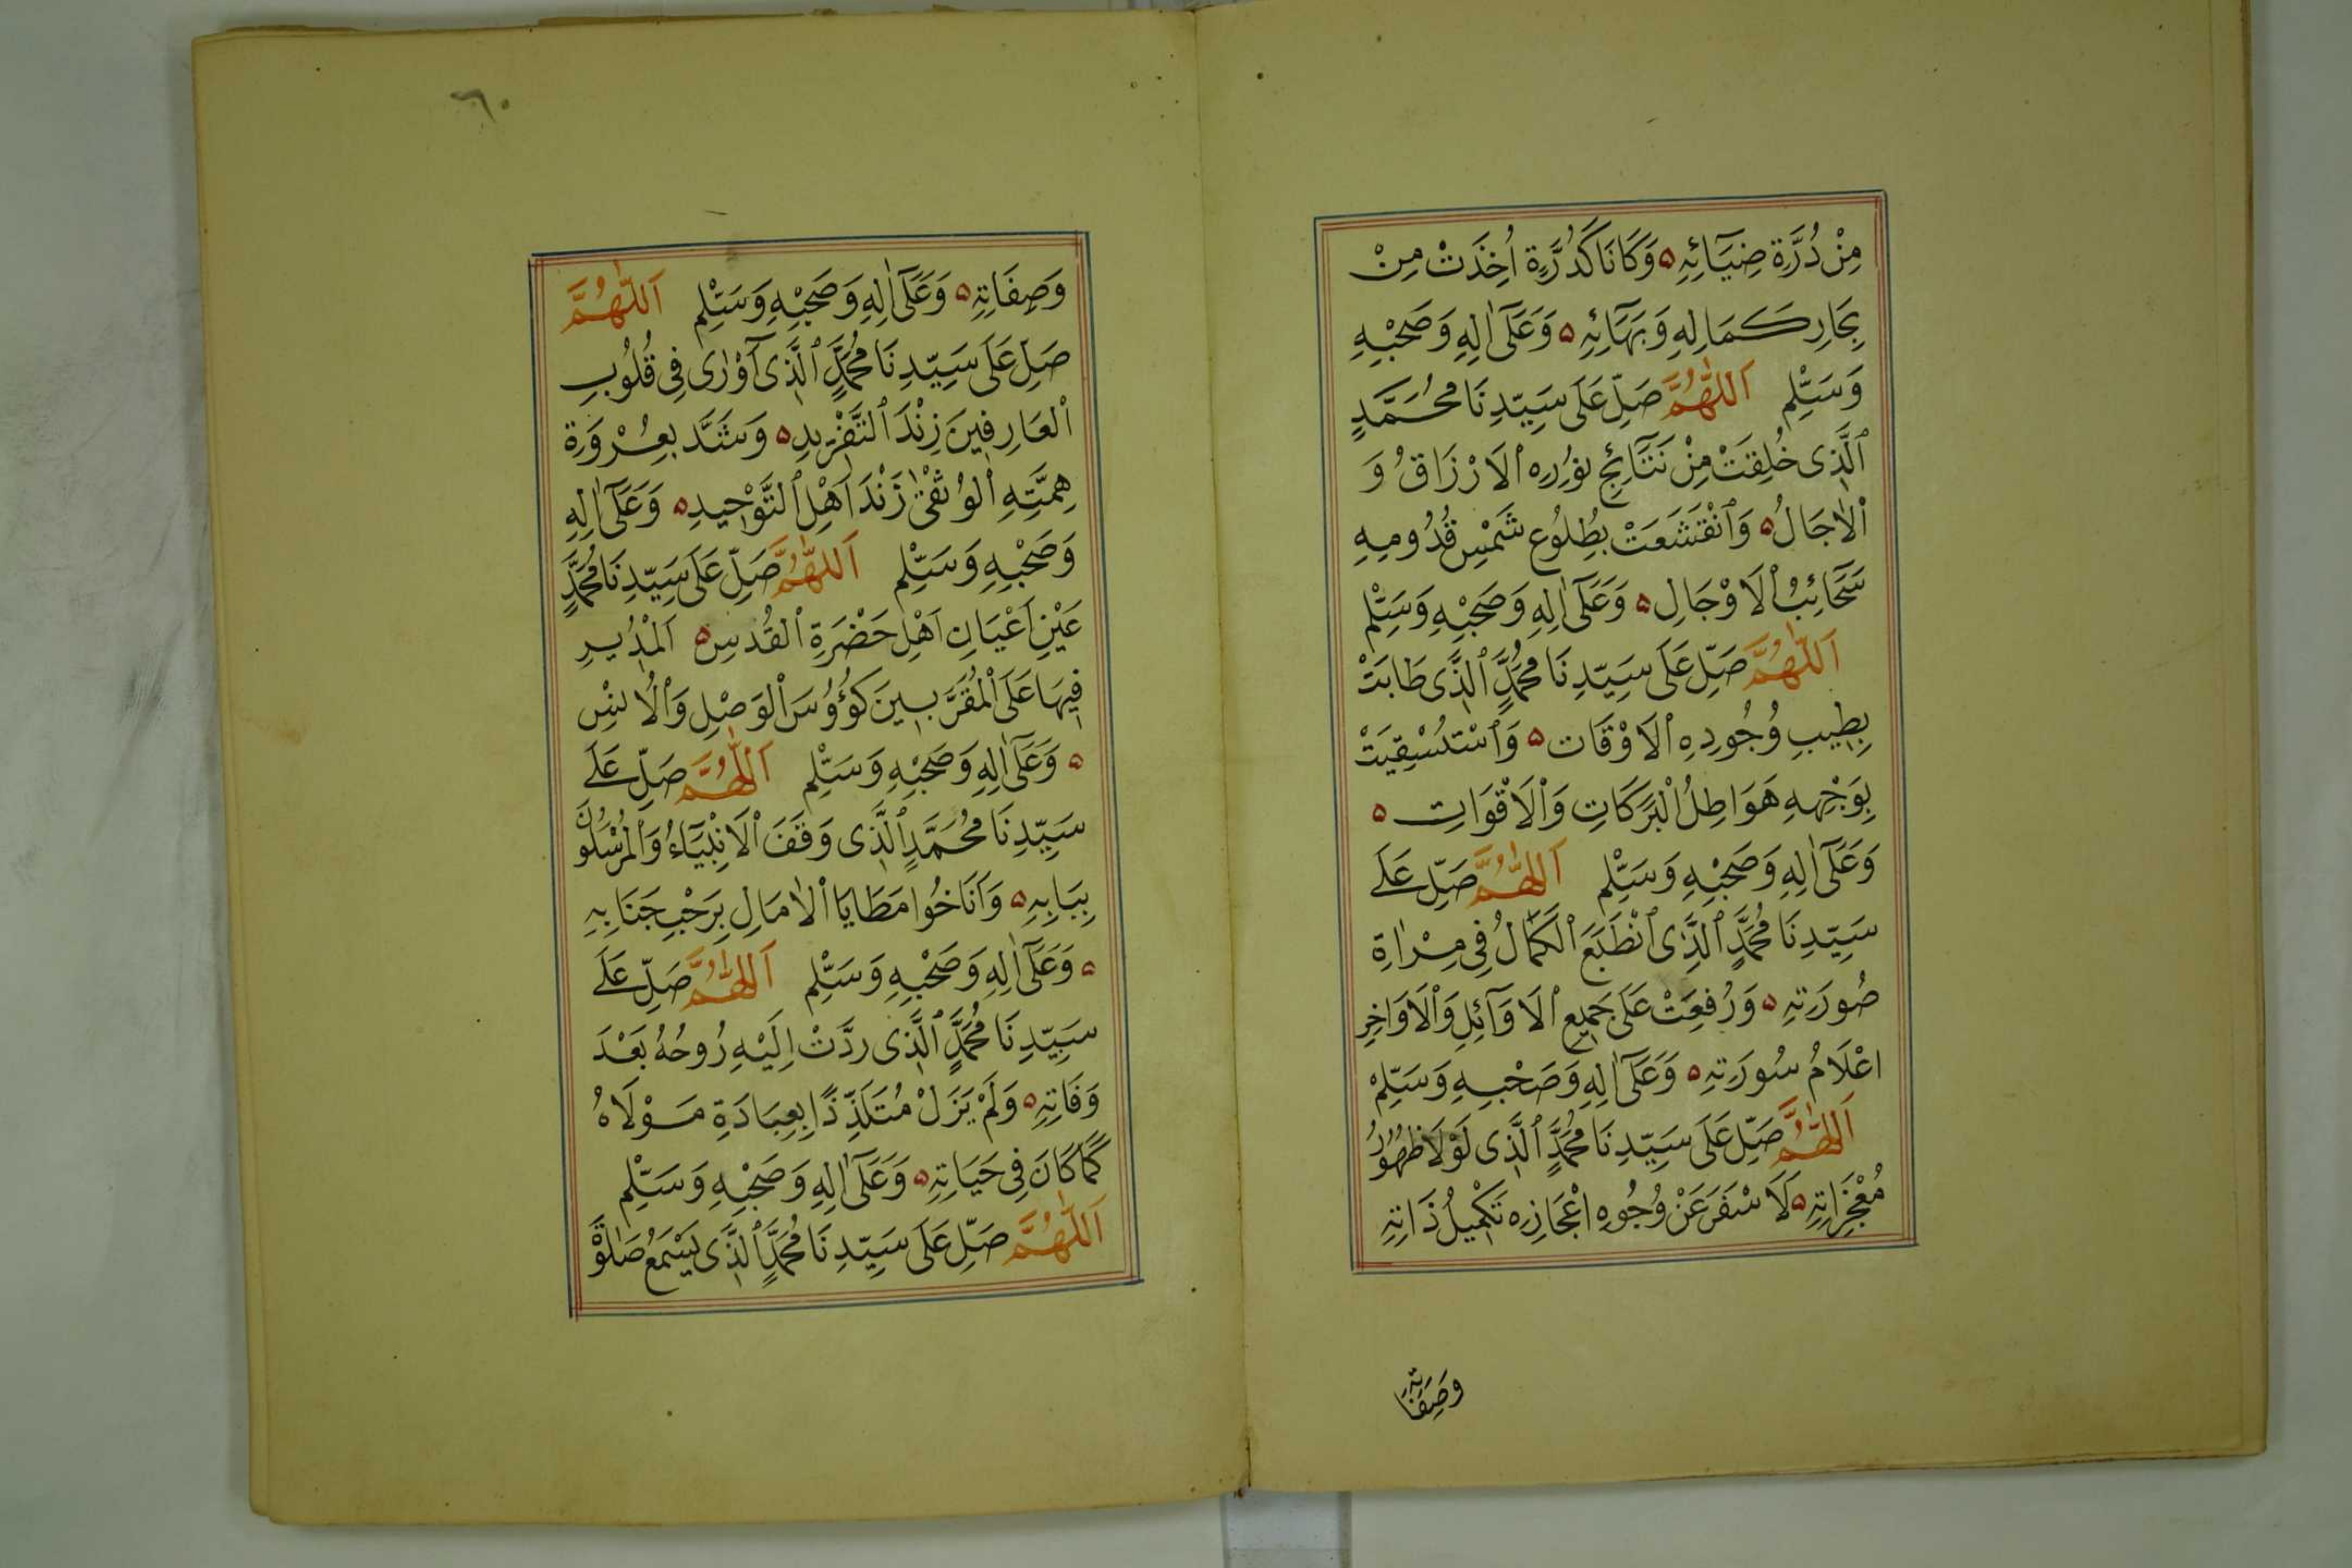 مِنْ دُرَّةِ ضِيَآئِهِ ۵ وَكَانَا كَدُرَّةٍ اُخِذَتْ مِنْ
بِحَارِ كَمَالِهِ وَبَهَائِهِ ۵ وَعَلَىٓ اٰلِهِ وَصَحْبِهِ
وَسَلِّمْ اَللّٰهُمَّ صَلِّ عَلَى سَيِّدِنَا مُحَمَّدٍ
ٱلَّذِى خُلِقَتْ مِنْ نَتَآئِجِ نُورِهِ ٱلاَرْزَاقُ وَ
ٱلاٰجَالُ ۵ وَٱنْقَشَعَتْ بِطُلُوعِ شَمْسِ قُدُومِهِ
سَحَآئِبُ ٱلاَوْجَالِ ۵ وَعَلَىٓ اٰلِهِ وَصَحْبِهِ وَسَلِّمْ
اَللّٰهُمَّ صَلِّ عَلَى سَيِّدِنَا مُحَمَّدٍ ٱلَّذِى طَابَتْ
بِطِيبِ وُجُودِهِ ٱلاَوْقَات ۵ وَٱسْتُسْقِيَتْ
بِوَجْهِهِ هَوَاطِلُ ٱلْبَرَكَاتِ وَٱلاَقْوَاتِ ۵
وَعَلَىٓ اٰلِهِ وَصَحْبِهِ وَسَلِّمْ اَللّٰهُمَّ صَلِّ عَلَى
سَيِّدِنَا مُحَمَّدٍ ٱلَّذِى ٱنْطَبَعَ ٱلْكَمَالُ فِى مِرْاٰةِ
صُورَتِهِ ۵ وَرُفِعَتْ عَلَى جَمِيعِ ٱلاَوَآئِلِ وَٱلاَوَاخِرِ
اعْلَامُ سُورَتِهِ ۵ وَعَلَىٓ اٰلِهِ وَصَحْبِهِ وَسَلِّمْ
اَللّٰهُمَّ صَلِّ عَلَى سَيِّدِنَا مُحَمَّدٍ ٱلَّذِى لَوْلَا ظُهُورُ
مُعْجِزَاتِهِ ۵ لَاَسْفَرَ عَنْ وُجُوهِ اعْجَازِهِ تَكْمِيلُ ذَاتِهِ
وَصِفَاتِهِ
٦٠
وَصِفَاتِهِ ۵ وَعَلَىٓ اٰلِهِ وَصَحْبِهِ وَسَلِّمْ اَللّٰهُمَّ
صَلِّ عَلَى سَيِّدِنَا مُحَمَّدٍ ٱلَّذِىٓ اَوْرٰى فِى قُلُوبِ
ٱلْعَارِفِينَ زِنْدَ ٱلتَّفْرِيدِ ۵ وَشَدَّ بِعُرْوَةِ
هِمَّتِهِ ٱلْوُثْقٰى زَنْدَ اَهْلِ ٱلتَّوْحِيدِ ۵ وَعَلَىٓ اٰلِهِ
وَصَحْبِهِ وَسَلِّمْ اَللّٰهُمَّ صَلِّ عَلَى سَيِّدِنَا مُحَمَّدٍ
عَيْنِ اَعْيَانِ اَهْلِ حَضْرَةِ ٱلْقُدسِ ۵ اَلْمُدِيرِ
فِيهَا عَلَى ٱلْمُقَرَّبِينَ كُؤُوسَ ٱلْوَصْلِ وَٱلْاُنْسِ
۵ وَعَلَىٓ اٰلِهِ وَصَحْبِهِ وَسَلِّمْ اَللّٰهُمَّ صَلِّ عَلَى
سَيِّدِنَا مُحَمَّدٍ ٱلَّذِى وَقَفَ ٱلاَنْبِيَآءُ وَٱلْمُرْسَلُونَ
بِبَابِهِ ۵ وَاَنَاخُوا مَطَايَا ٱلاٰمَالِ بِرَحْبِ جَنَابِهِ
۵ وَعَلَىٓ اٰلِهِ وَصَحْبِهِ وَسَلِّمْ اَللّٰهُمَّ صَلِّ عَلَى
سَيِّدِنَا مُحَمَّدٍ ٱلَّذِى ردَّتْ اِلَيْهِ رُوحُهُ بَعْدَ
وَفَاتِهِ ۵ وَلَمْ يَزَلْ مُتَلَذِّذًا بِعِبَادَةِ مَوْلَاهُ
كَمَا كَانَ فِى حَيَاتِهِ ۵ وَعَلَىٓ اٰلِهِ وَصَحْبِهِ وَسَلِّمْ
اَللّٰهُمَّ صَلِّ عَلَى سَيِّدِنَا مُحَمَّدٍ ٱلَّذِى يَسْمَعُ صَلٰوةَ